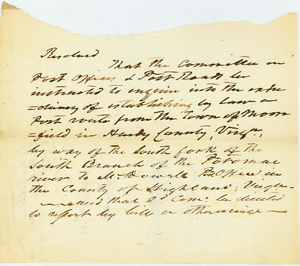 Resolved
That the Committee on
Post Offices & Post Roads be
instructed to inquire into the expe
=diency of establishing by law a
Post route from the Town of Moore
=field in Hardy County, Virga,
by way of the South fork of the
South Branch of the Potomac
river to McDowell P. Office in
the County of Highland, Virginia
and that sd Come. be directed
to report by bill or otherwise